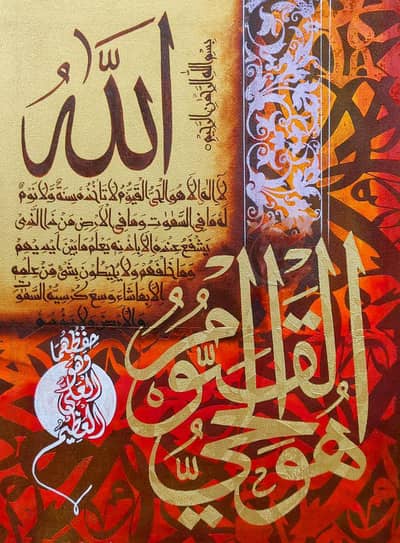 الله
بسم الله الرحمن الرحيم
لا اله الا هو الحي القيوم لا تأخذه سنة ولا نوم
له ما في السموت وما في الارض من ذا الذي
يشفع عنده الا باذنه يعلم ما بين ايديهم
وما خلفهم ولا يحيطون بشئ من علمه
الا بما شاء وسع كرسيه السموت
والارض ولا
حفظهما
وهو
العلي
العظيم
هو الحي القيوم